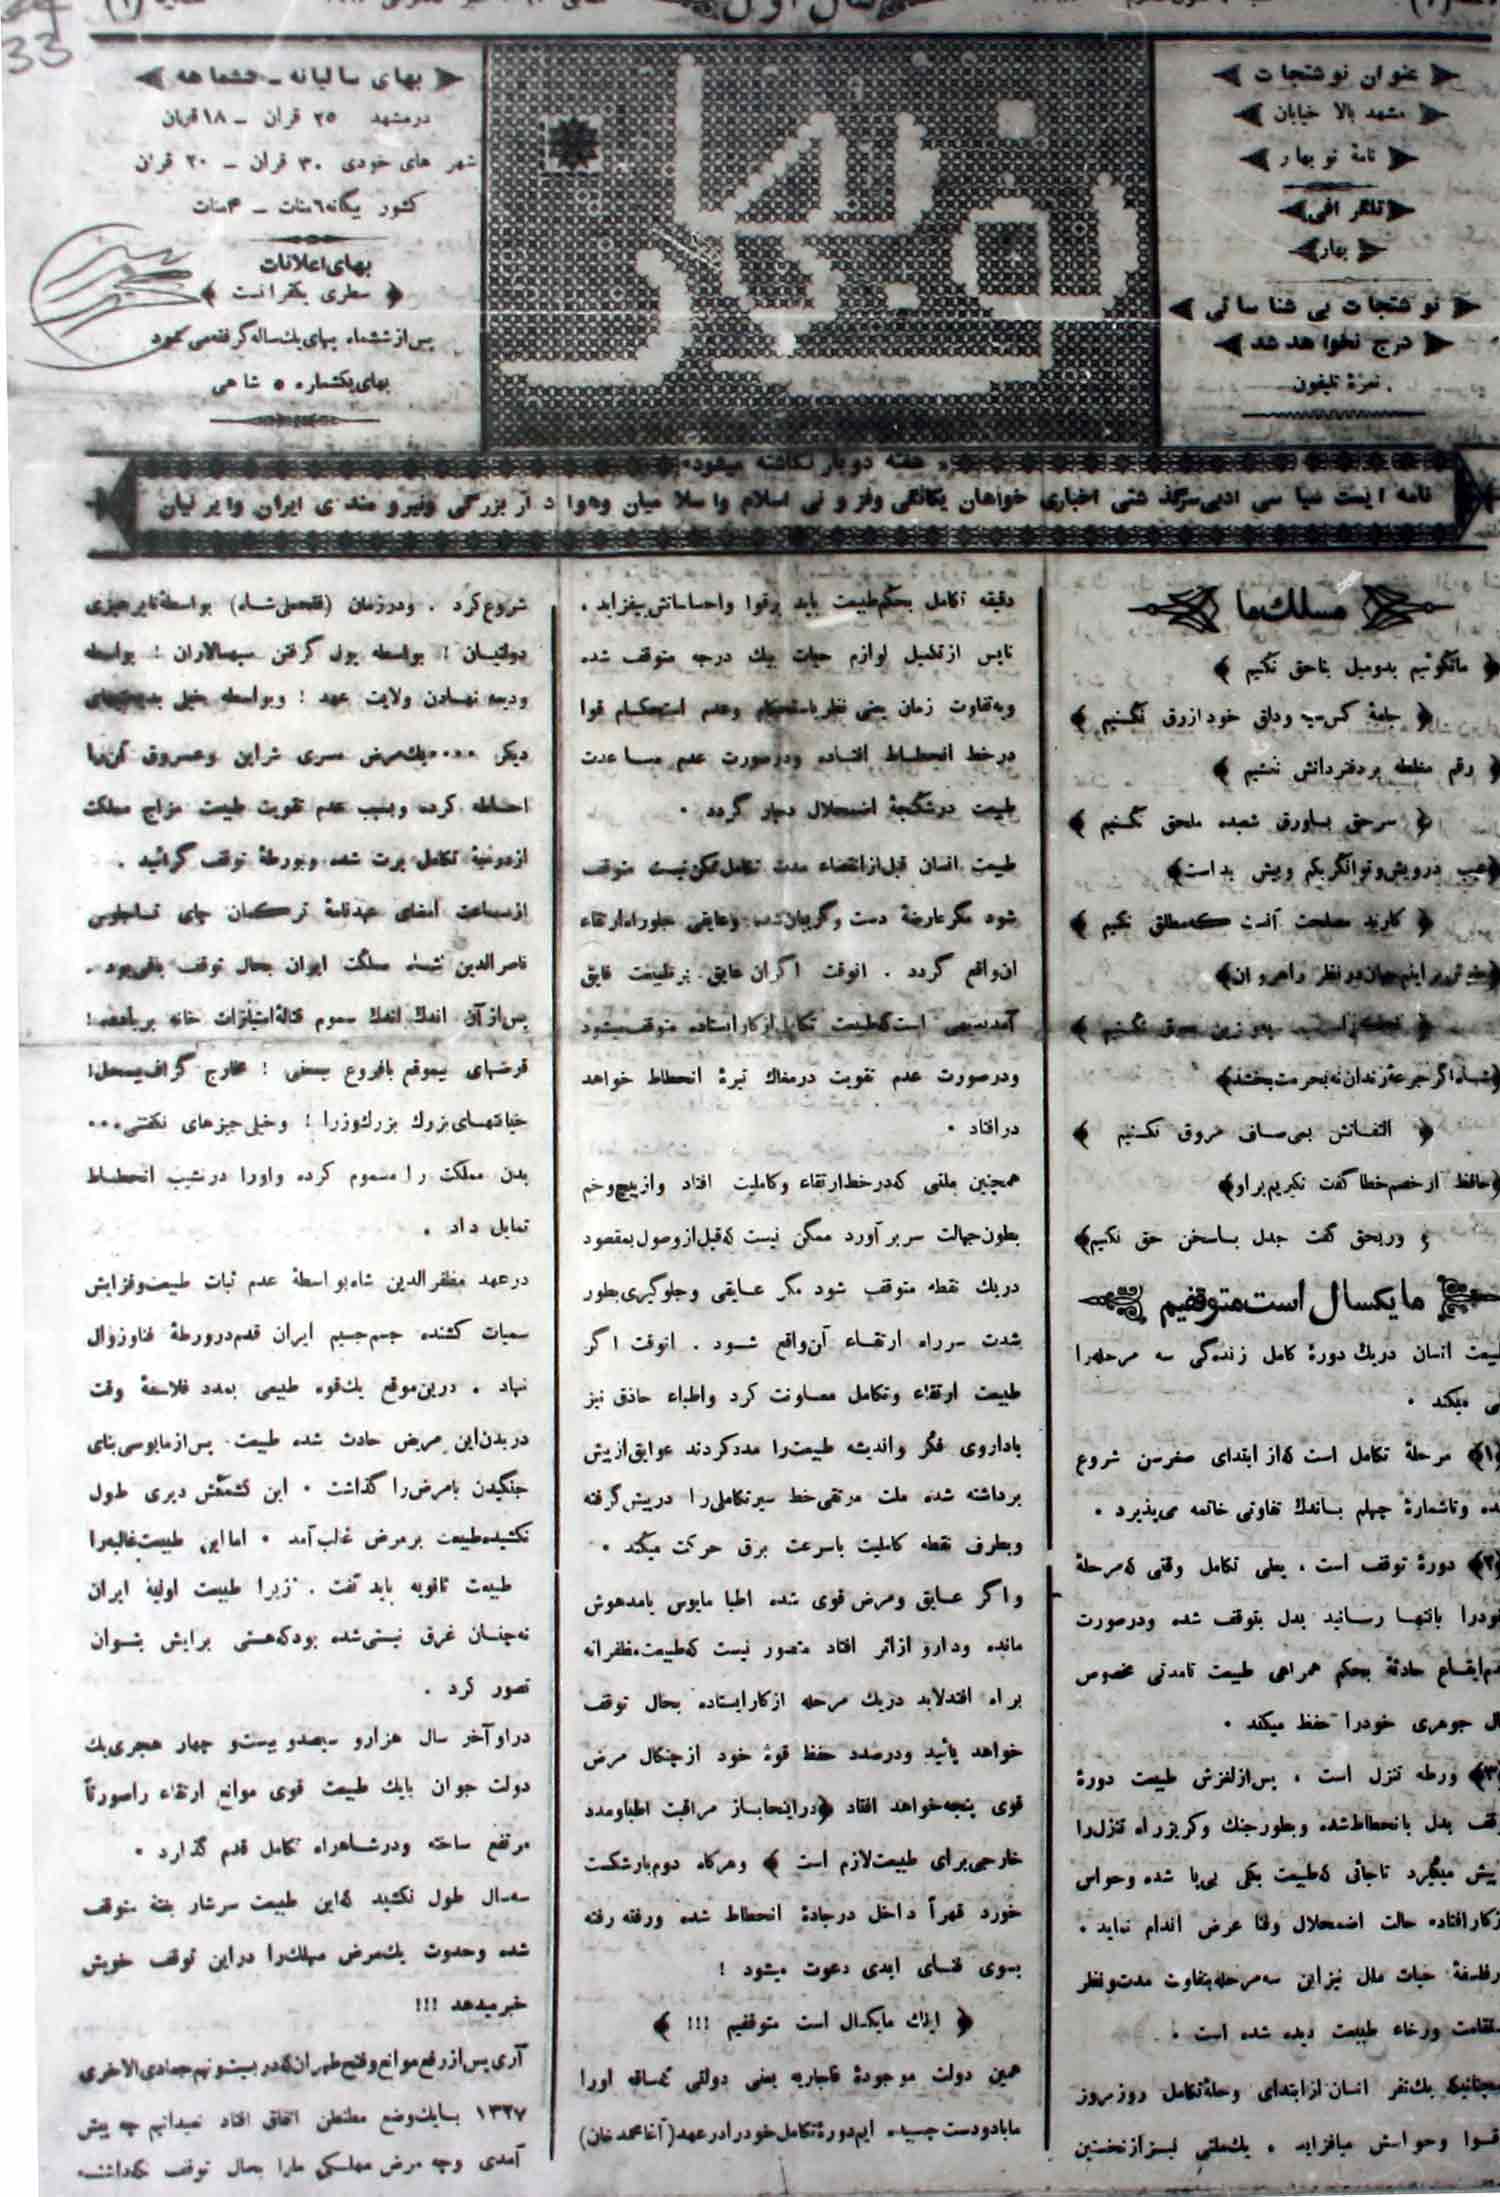 سال اول
عنوان نوشتجات
مشهد بالا خیابان
نامهٔ نوبهار
تلگرافی
بهار
نوشتجات بی شناسائی
درج نخواهد شد
نمرهٔ تلیفون
نوبهار
بهای سالیانه - ششماهه
در مشهد ۲۵ قران - ۱۸ قران
شهر های خودی ۳۰ قران - ۲۰ قران
کشور بیگانه ۶ منات - ۴ منات
بهای اعلانات
سطری یکقرانست
پس از ششماه بهای یک ساله گرفته می شود
بهای یکشماره ۵ شاهی
هفته دوبار نگاشته میشود
نامه ایست سیاسی ادبی سرگذشتی اخباری خواهان یگانگی و فزونی اسلام و اسلامیان و هوادار بزرگی و نیرومندی ایران و ایرانیان
مسلک ما
﴿ ما نگوئیم بد و میل بناحق نکنیم ﴾
﴿ جامهٔ کس سیه و دلق خود ازرق نکنیم ﴾
﴿ رقم مغلطه بر دفتر دانش نکشیم ﴾
﴿ سر حق با ورق شعبده ملحق نکنیم ﴾
﴿ عیب درویش و توانگر بکم و بیش بد است ﴾
﴿ کار بد مصلحت آنست که مطلق نکنیم ﴾
جهان در نظر راهروان ﴾
﴿ نکنیم ﴾
﴿ شاه اگر جرعهٔ رندان نه بحرمت بخشد ﴾
﴿ التفاتش بمی صاف مروق نکنیم ﴾
﴿ حافظ ار خصم خطا گفت نگیریم بر او ﴾
﴿ ور بحق گفت جدل با سخن حق نکنیم ﴾
ما یکسال است متوقفیم
طبیعت انسان در یک دورهٔ کامل زندگی سه مرحله را
میکند .
﴿۱﴾ مرحلهٔ تکامل است که از ابتدای صغر سن شروع
شده و تا شمارهٔ چهلم باندک تفاوتی خاتمه می پذیرد .
﴿۲﴾ دورهٔ توقف است . یعنی تکامل وقتی که مرحلهٔ
خود را بانتها رسانید بدل بتوقف شده و در صورت
عدم ایقاع حادثهٔ بحکم همراهی طبیعت تا مدتی مخصوص
حال جوهری خود را حفظ میکند .
﴿۳﴾ ورطه تنزل است . پس از لغزش طبیعت دورهٔ
توقف بدل بانحطاط شده و بطور جنک و گریز راه تنزل را
پیش میگیرد تا جائی که طبیعت بکی بی پا شده و حواس
از کار افتاده حالت اضمحلال و فنا عرض اندام نماید .
در فلسفهٔ حیات ملل نیز این سه مرحله بتفاوت مدت و نظر
باستقامت و رخاء طبیعت دیده شده است .
همچنانیکه یک نفر انسان از ابتدای وحلهٔ تکامل روز بروز
قوا و حواسش میافزاید . یک ملتی نیز از نخستین
دقیقه تکامل بحکم طبیعت باید بر قوا و احساساتش بیفزاید .
تا پس از تکمیل لوازم حیات بیک درجه متوقف شده
و به تفاوت زمان یعنی نظر باستحکام و عدم استحکام قوا
در خط انحطاط افتاده و در صورت عدم مساعدت
طبیعت در شکنجهٔ اضمحلال دچار گردد .
طبیعت انسان قبل از انقضاء مدت تکامل ممکن نیست متوقف
شود مگر عارضهٔ دست و گریبان شده و عایقی جلو راه ارتقاء
آن واقع گردد . انوقت اگر آن عایق بر طبیعت فایق
آمد بدیهی است که طبیعت تکامل از کار ایستاده متوقف میشود
و در صورت عدم تقویت در مغاک تیرهٔ انحطاط خواهد
در افتاد .
همچنین ملتی که در خط ارتقاء و کاملیت افتاد و از پیچ و خم
بطون جهالت سر بر آورد ممکن نیست که قبل از وصول بمقصود
در یک نقطه متوقف شود مگر عایقی و جلوگیری بطور
شدت سر راه ارتقاء آن واقع شود . انوقت اگر
طبیعت ارتقاء و تکامل معاونت کرد و اطباء حاذق نیز
با داروی فکر و اندیشه طبیعت را مدد کردند عوایق از پیش
برداشته شده ملت مرتقی خط سیر تکاملی را در پیش گرفته
و بطرف نقطه کاملیت با سرعت برق حرکت میکند .
و اگر عایق و مرض قوی شده اطبا مایوس یا مدهوش
مانده و دارو از اثر افتاد متصور نیست که طبیعت مظفرانه
براه افتد لابد در یک مرحله از کار ایستاده بحال توقف
خواهد پائید و در صدد حفظ قوهٔ خود از چنکال مرض
قوی پنجه خواهد افتاد ﴿ در اینجا باز مراقبت اطبا و مدد
خارجی برای طبیعت لازم است ﴾ و هرگاه دوم بار شکست
خورد قهراً داخل در جادهٔ انحطاط شده و رفته رفته
بسوی فنای ابدی دعوت میشود !
﴿ اینک ما یکسال است متوقفیم !!! ﴾
همین دولت موجودهٔ قاجاریه یعنی دولتی که ساقه او را
ما با دو دست چسبیده ایم دورهٔ تکامل خود را در عهد (آغا محمد خان)
شروع کرد . و در زمان (فتحعلی شاه) بواسطهٔ ناپرهیزی
دولتیان ! بواسطه پول گرفتن سپهسالاران ! بواسطه
ودیعه نهادن ولایت عهد ! و بواسطه خیلی بدبختیهای
دیگر .... یک مرض مسری شراین و عسروق آن را
احاطه کرده و بسبب عدم تقویت طبیعت مزاج مملکت
از دو نیهٔ تکامل پرت شده و بورطهٔ توقف گرائید .
از ساعت امضای عهدنامهٔ ترکمان چای تا جلوس
ناصرالدین شاه مملکت ایران بحال توقف باقی بود .
پس از آن اندک اندک سموم قتالهٔ امتیازات خانه بر باد ده !
قرضهای بیموقع با فروع سخنی ! مخارج گزاف بیمحل !
خیانتهای بزرک بزرک وزرا ! و خیلی چیزهای نگفتنی ...
بدن مملکت را مسموم کرده و او را در نشیب انحطاط
تمایل داد .
در عهد مظفرالدین شاه بواسطهٔ عدم ثبات طبیعت و فزایش
سمیات کشنده جسم جسیم ایران قدم در ورطهٔ فنا و زوال
نهاد . درین موقع یک قوه طبیعی بمدد فلاسفهٔ وقت
در بدن این مریض حادث شده طبیعت پس از مایوسی بنای
جنگیدن با مرض را گذاشت . این کشمکش دیری طول
نکشیده طبیعت بر مرض غالب آمد . اما این طبیعت غالبه را
طبیعت ثانویه باید گفت . زیرا طبیعت اولیهٔ ایران
نه چنان غرق نیستی شده بود که هستی برایش بتوان
تصور کرد .
در اواخر سال هزار و سیصد و بیست و چهار هجری یک
دولت جوان با یک طبیعت قوی موانع ارتقاء را صورتاً
مرتفع ساخته و در شاهراه تکامل قدم گذارد .
سه سال طول نکشید که این طبیعت سرشار بغتهٔ متوقف
شده و حدوث یک مرض مهلک را در این توقف خویش
خبر میدهد !!!
آری پس از رفع موانع و فتح طهران که در بیست و نهم جمادی الاخری
۱۳۲۷ با یک وضع مطنطن اتفاق افتاد نمیدانیم چه پیش
آمدی و چه مرض مهلکی ما را بحال توقف گذاشته